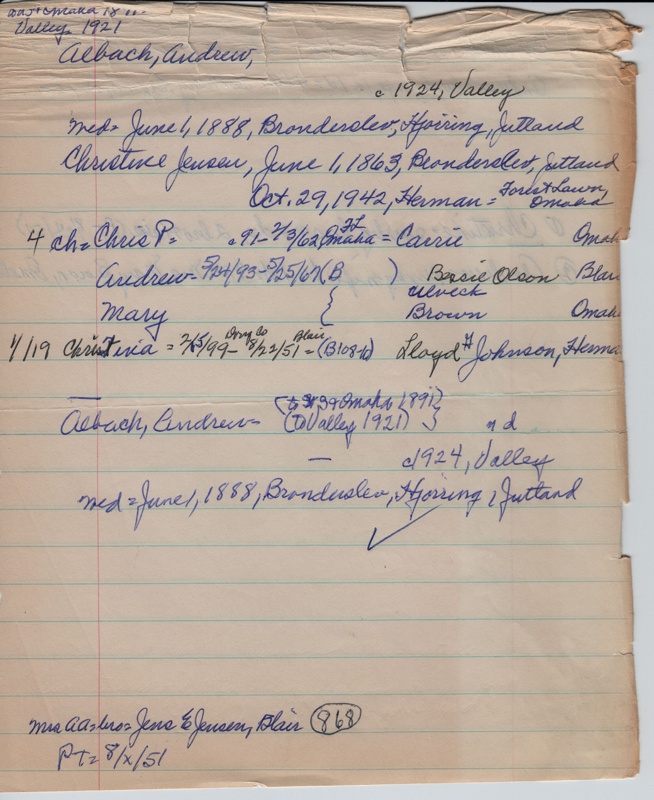 Omaha 18
Valley 1921
Aebach, Andrew,
c 1924, Valley
med = June 1, 1888, Bronderslev, Hjorring, Jutland
Christine Jensen, June 1, 1863, Bronderslev, Jutland
Oct. 29, 1942, Herman = Forest Lawn, Omaha
4 ch = Chris P = c 91 - 2/3/62 Omaha = FL Carrie Omah
Andrew = 5/24/93 - 5/25/67 (B ) Bessie Olson Blai
Mary { Ulveck
Brown Omah
1/19 Christina = 2/5/99 - Doug Co 8/22/51 = Blair (B108-b) Lloyd H Johnson, Herma
Aebach, Andrew = (to Omaha 1891)
(to Valley 1921) } nd
— c1924, Valley
med = June 1, 1888, Bronderslev, Hjorring, Jutland
Mrs AA = bro = Jens E Jensen, Blair 868
Pt = 8/x/51